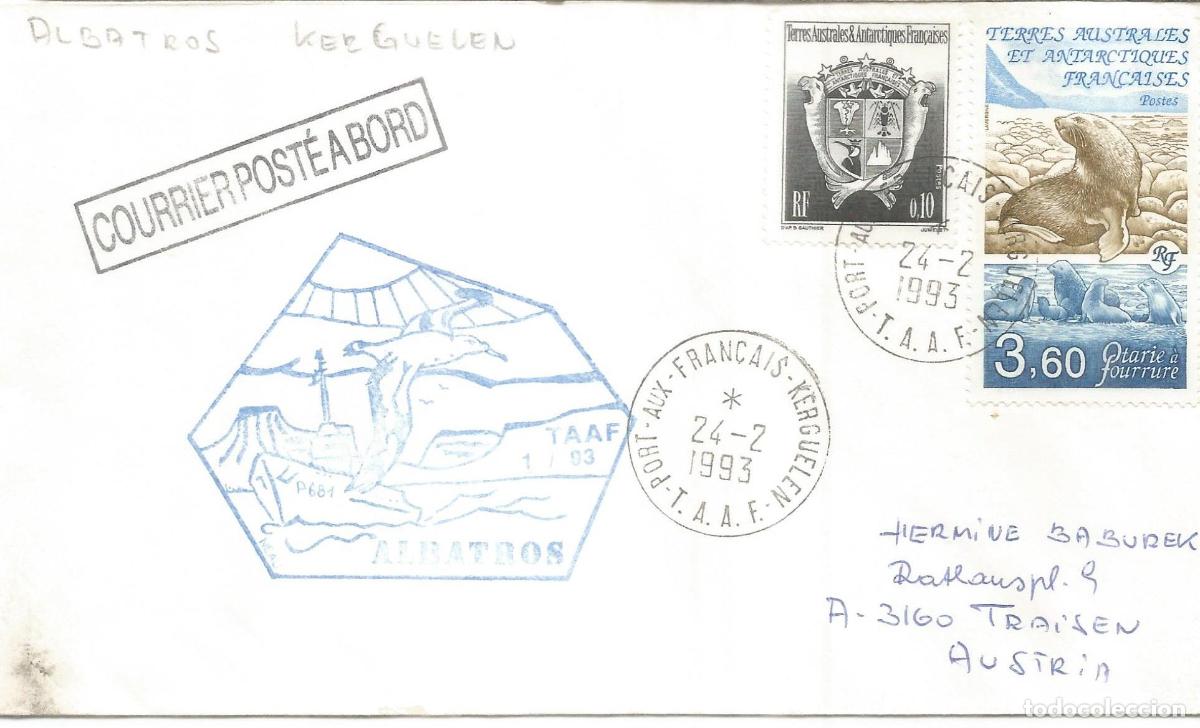 ALBATROS KERGUELEN
COURRIER POSTÉ A BORD
Terres Australes & Antarctiques Françaises
TERRES AUSTRALES ET
ANTARCTIQUES FRANÇAISES
RF
0,10
Postes
D'AP. D. GAUTHIER
JUMELET
TERRES AUSTRALES
ET ANTARCTIQUES
FRANÇAISES
Postes
RF
3,60 Otarie à
fourrure
PORT-AUX-FRANÇAIS-KERGUELEN
24-2
1993
T.A.A.F.
TAAF
1 / 93
P681
ALBATROS
PORT-AUX-FRANÇAIS-KERGUELEN
*
24-2
1993
T.A.A.F.
HERMINE BABUREK
Rathauspl. 9
A-3160 TRAISEN
AUSTRIA
todocoleccion